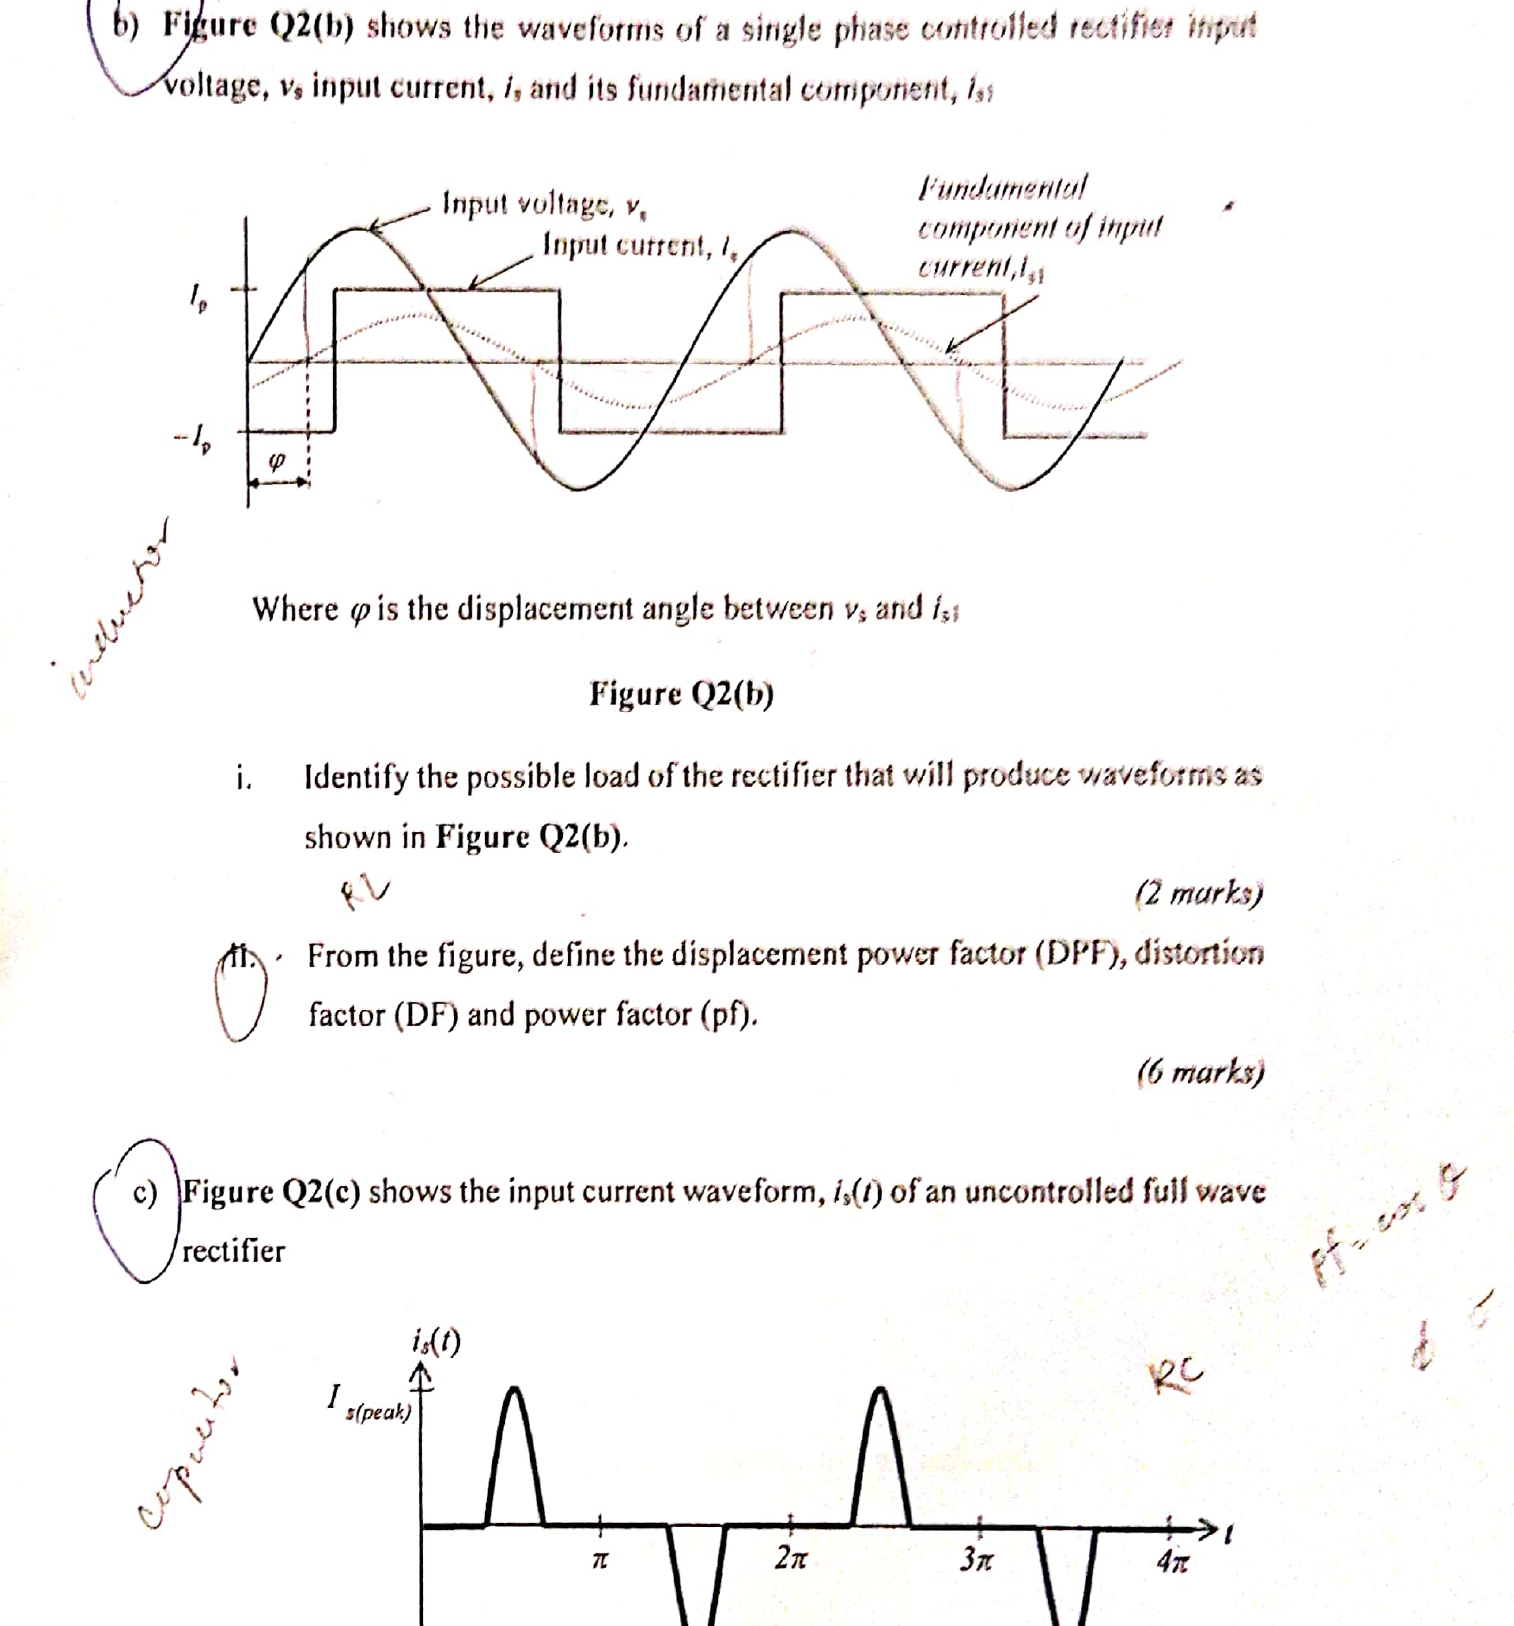 b) Figure Q2(b) shows the waveforms of a single phase controlled rectifier input
voltage, vs input current, is and its fundamental component, is1
Input voltage, vs
Input current, is
Fundamental
component of input
current, is1
Ip
-Ip
φ
inductor
Where φ is the displacement angle between vs and is1
Figure Q2(b)
i. Identify the possible load of the rectifier that will produce waveforms as
shown in Figure Q2(b).
RL
(2 marks)
ii. From the figure, define the displacement power factor (DPF), distortion
factor (DF) and power factor (pf).
(6 marks)
c) Figure Q2(c) shows the input current waveform, is(t) of an uncontrolled full wave
rectifier
pf = cos θ
is(t)
I s(peak)
RC
capacitor
π 2π 3π 4π t